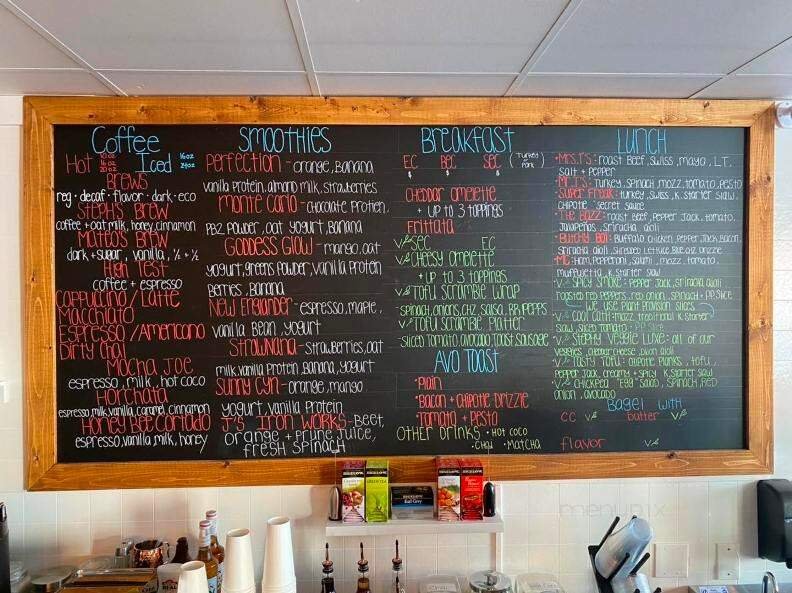 Coffee
Hot 10oz 16oz 20oz Iced 16oz 24oz
Brews
reg · decaf · flavor · dark · eco
Steph's Brew
coffee + oat milk, honey, cinnamon
Matteo's Brew
dark + sugar, vanilla, ½ + ½
High Test
coffee + espresso
Cappuccino / Latte
Macchiato
Espresso / Americano
Dirty Chai
Mocha Joe
espresso, milk, hot coco
Horchata
espresso, milk, vanilla, caramel, cinnamon
Honey Bee Cortado
espresso, vanilla, milk, honey
Smoothies
Perfection - orange, Banana
vanilla protein, almond milk, strawberries
Monte Carlo - chocolate Protien,
PB2 Powder, oat yogurt, Banana
Goddess Glow - mango, oat
yogurt, greens powder, vanilla Protein
Berries, Banana
New Englander - espresso, maple,
vanilla Bean, yogurt
StrawNana - strawberries, oat
milk, vanilla Protein, Banana, yogurt
Sunny Cyn - orange, mango
yogurt, vanilla Protein
J's Iron Works - Beet,
orange + prune juice,
fresh spinach
Breakfast
EC BEC SEC (Turkey or Pork)
$ $ $
Cheddar omelette
+ up to 3 toppings
Frittata
SEC EC
Cheesy omelette
+ up to 3 toppings
Tofu Scramble Wrap
spinach, onions, chz, salsa, RR peppers
Tofu Scramble Platter
sliced Tomato, avocado, Toast, sausage
Avo Toast
· Plain
· Bacon + chipotle Drizzle
· Tomato + Pesto
Other Drinks · Hot coco
· Chai · Matcha
Lunch
· Mrs. T's: roast Beef, swiss, mayo, L.T.
salt + pepper
· Mr. T's: Turkey, spinach, mozz, tomato, pesto
· Super Freak: turkey, swiss, k. starter slaw,
chipotle "secret" sauce
· The Bazz: roast Beef, Pepper Jack, tomato,
Jalapeños, sriracha aioli
· Butchy Boi: Buffalo chicken, Pepper Jack, Bacon,
sriracha aioli, shredded Lettuce, Blue chz drizzle
· MC: Ham, Pepperoni, salami, mozz, tomato,
muffuletta, k. starter slaw
Spicy Smoke: Pepper Jack, sriracha aioli
roasted red peppers, red onion, spinach + P.P. Slice
we use Plant Provision slices
Cool Cath: mozz, traditional k. starter
slaw, sliced tomato + P.P. Slice
Stephy Veggie Luxe: all of our
veggies
Tasty Tofu: chipotle planks, tofu,
pepper Jack, creamy + spicy K. starter slaw
Chickpea "Egg" salad, spinach, RED
onion, avocado
Bagel with
CC butter
flavor
BIGELOW
BIGELOW
GREEN TEA
BIGELOW
Earl Grey
BIGELOW
BIGELOW
menupix